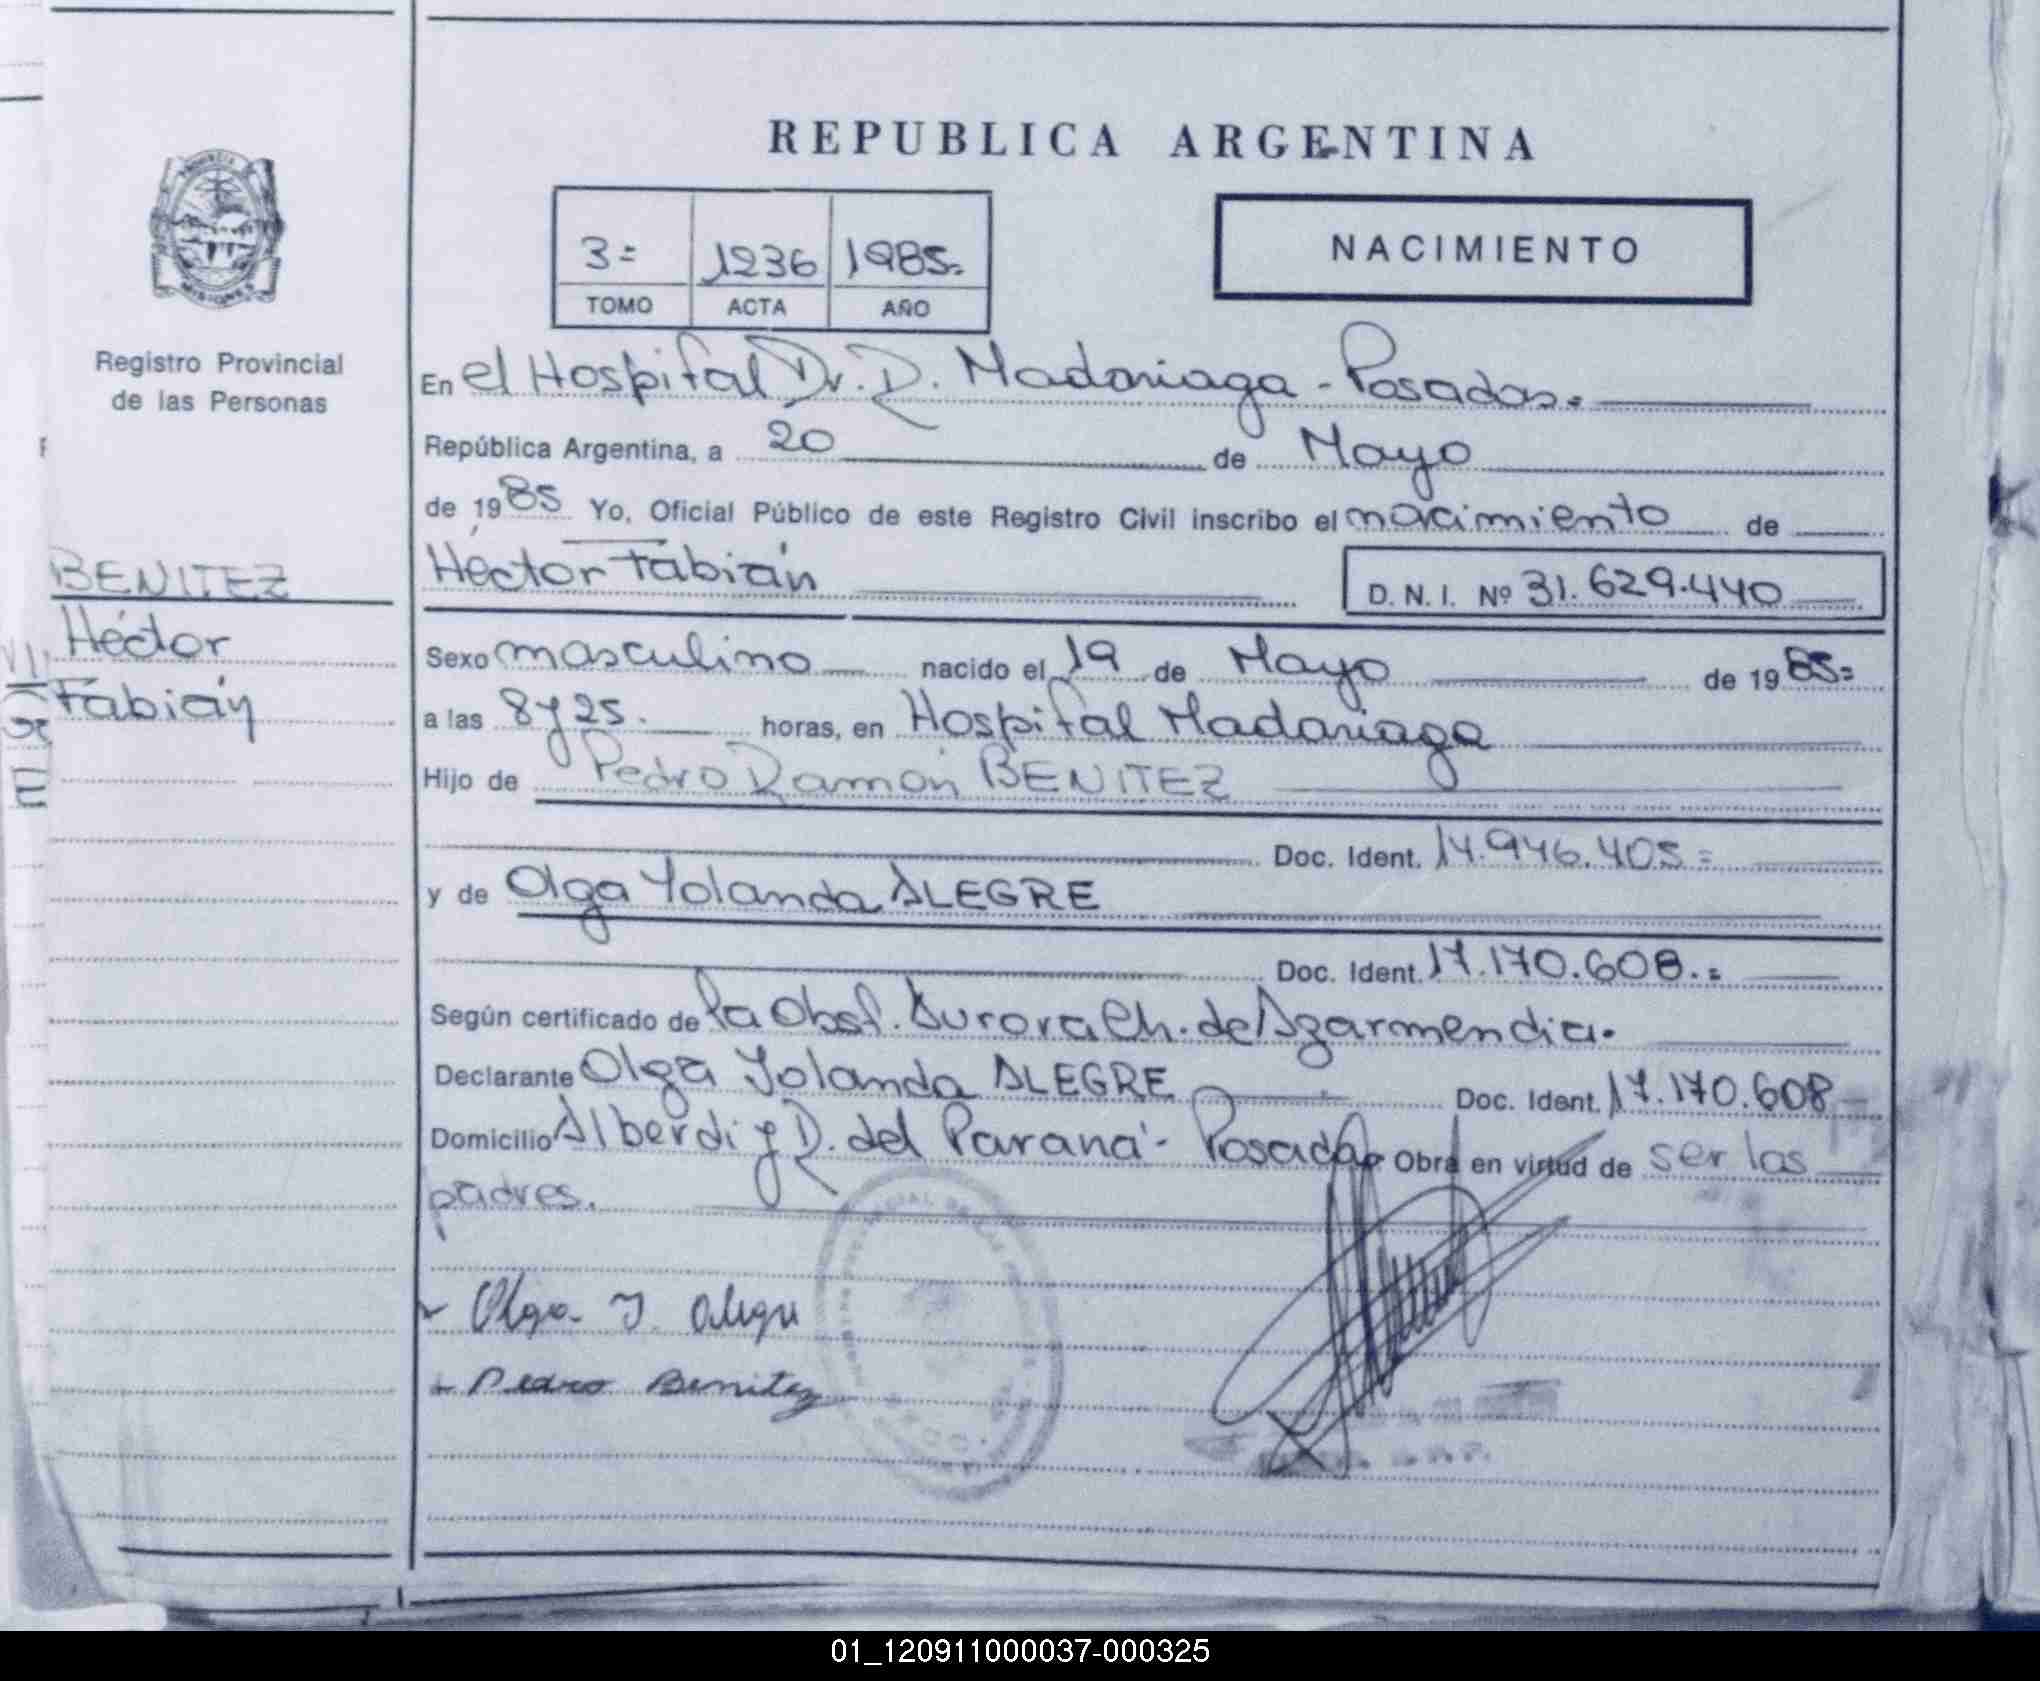 REPUBLICA ARGENTINA
PROVINCIA
MISIONES
Registro Provincial
de las Personas
BENITEZ
Héctor
Fabián
3=
1236
1985=
TOMO
ACTA
AÑO
NACIMIENTO
En el Hospital Dr. R. Madariaga - Posadas.
República Argentina, a 20 de Mayo
de 1985 Yo, Oficial Público de este Registro Civil inscribo el nacimiento de
Héctor Fabián
D. N. I. Nº 31.629.440
Sexo masculino nacido el 19 de Mayo de 1985=
a las 8 y 25. horas, en Hospital Madariaga
Hijo de Pedro Ramón BENITEZ
Doc. Ident. 14.946.405=
y de Olga Yolanda ALEGRE
Doc. Ident. 17.170.608.=
Según certificado de la Obst. Aurora Ch. de Azarmendia.
Declarante Olga Yolanda ALEGRE Doc. Ident. 17.170.608
Domicilio Alberdi y R. del Paraná - Posadas Obra en virtud de ser los
padres.
Olga Y. Alegre
Pedro Benitez
01_120911000037-000325